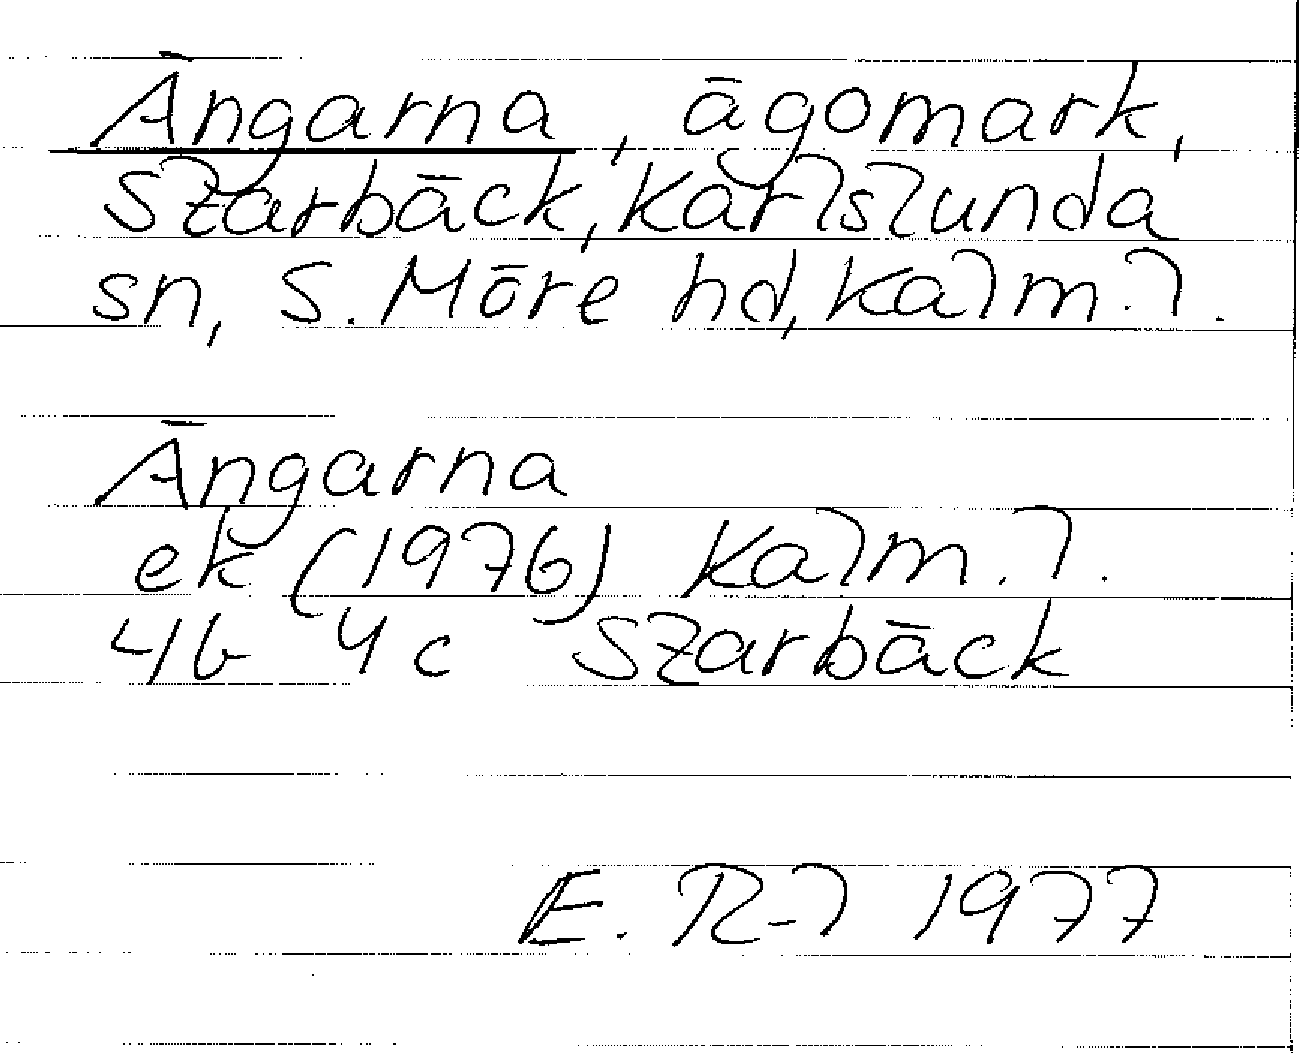 Ängarna, ägomark,
Starbäck, Karlslunda
sn, S. Möre hd, Kalm. l.
Ängarna
ek (1976) Kalm. l.
4b 4c Starbäck
E. R-l 1977